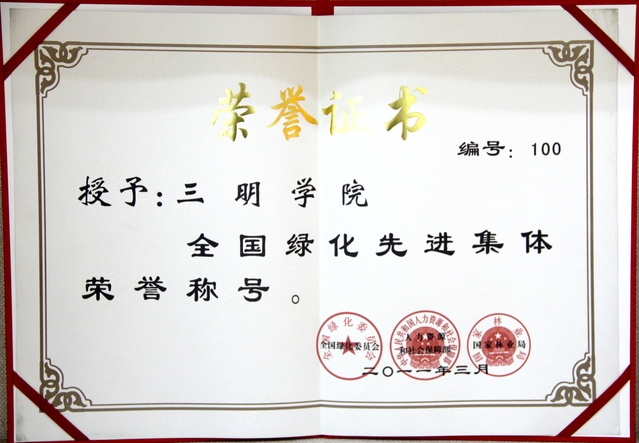 荣誉证书
编号：100
授予：三明学院
全国绿化先进集体
荣誉称号。
全国绿化委员会 人力资源和社会保障部 国家林业局
全国绿化委员会
中华人民共和国人力资源和社会保障部
国家林业局
二〇一一年三月